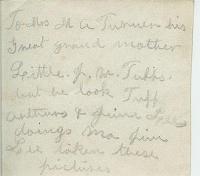 To Mrs M A Turner his
Great grand mother
Little J. W. Tubbs.
but he look Tuff
& 
doings ma Jim
Lee taken these
pictures